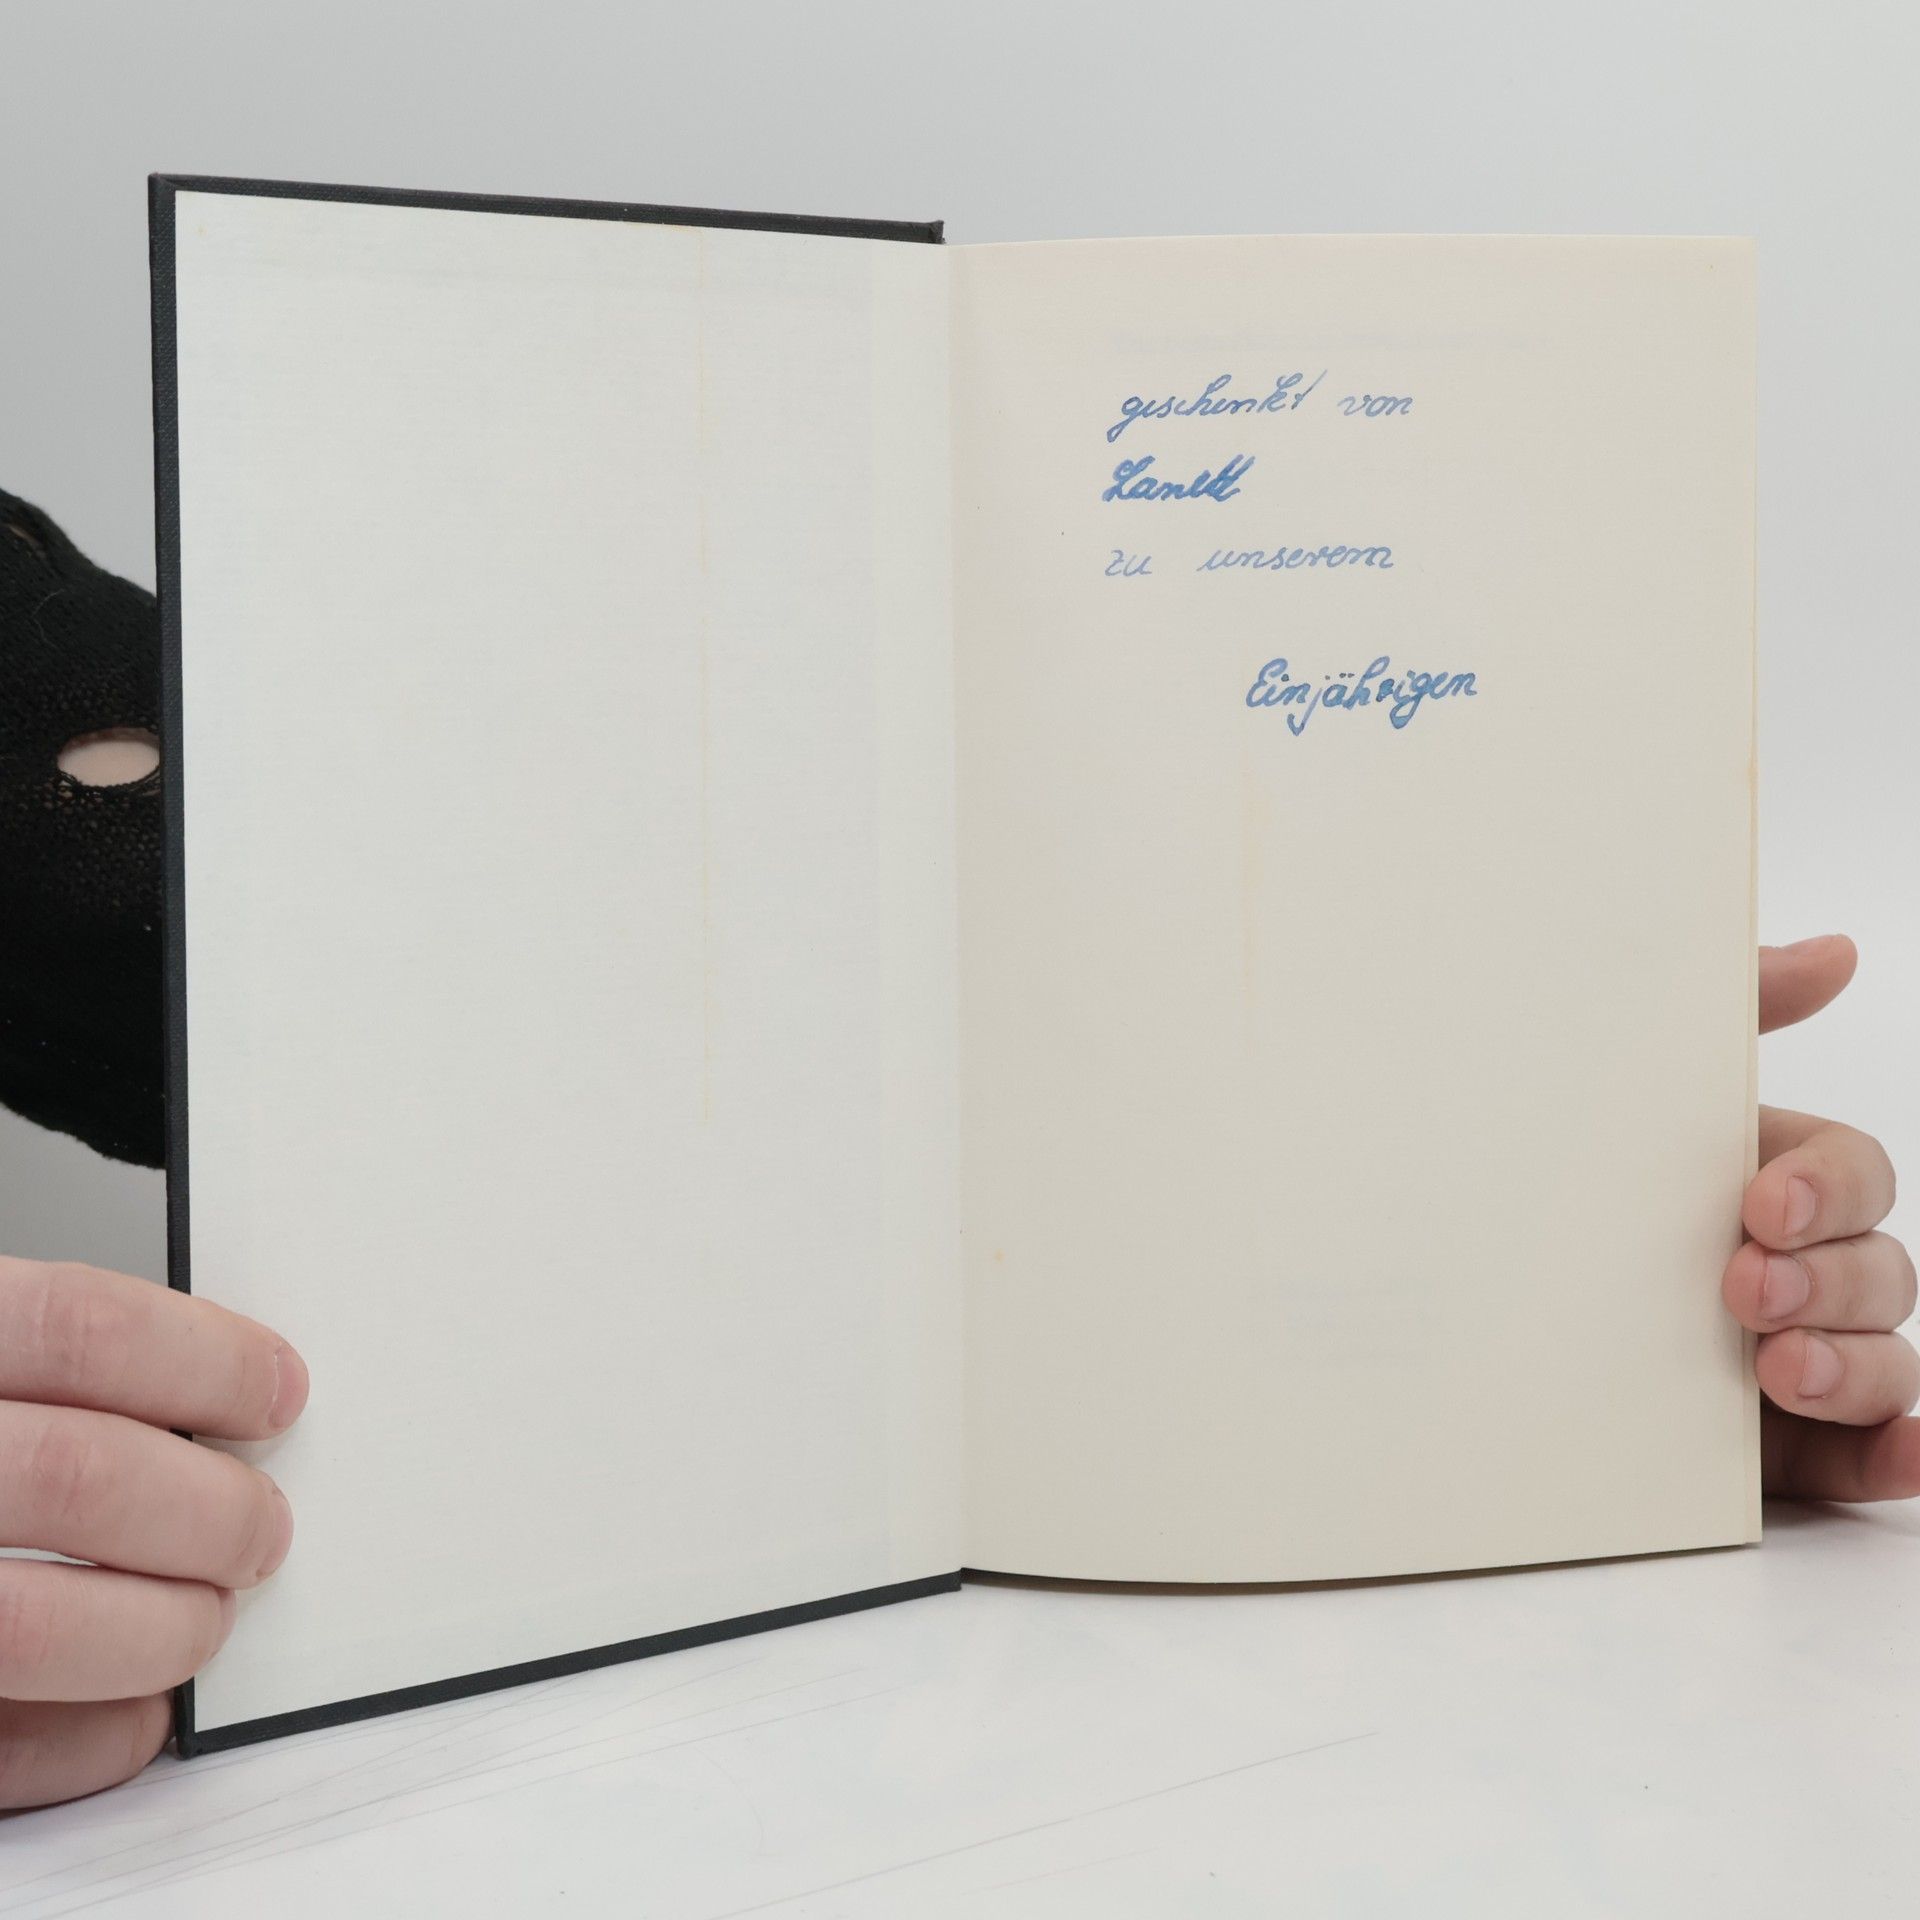 geschenkt von
zu unserem
Einjährigen